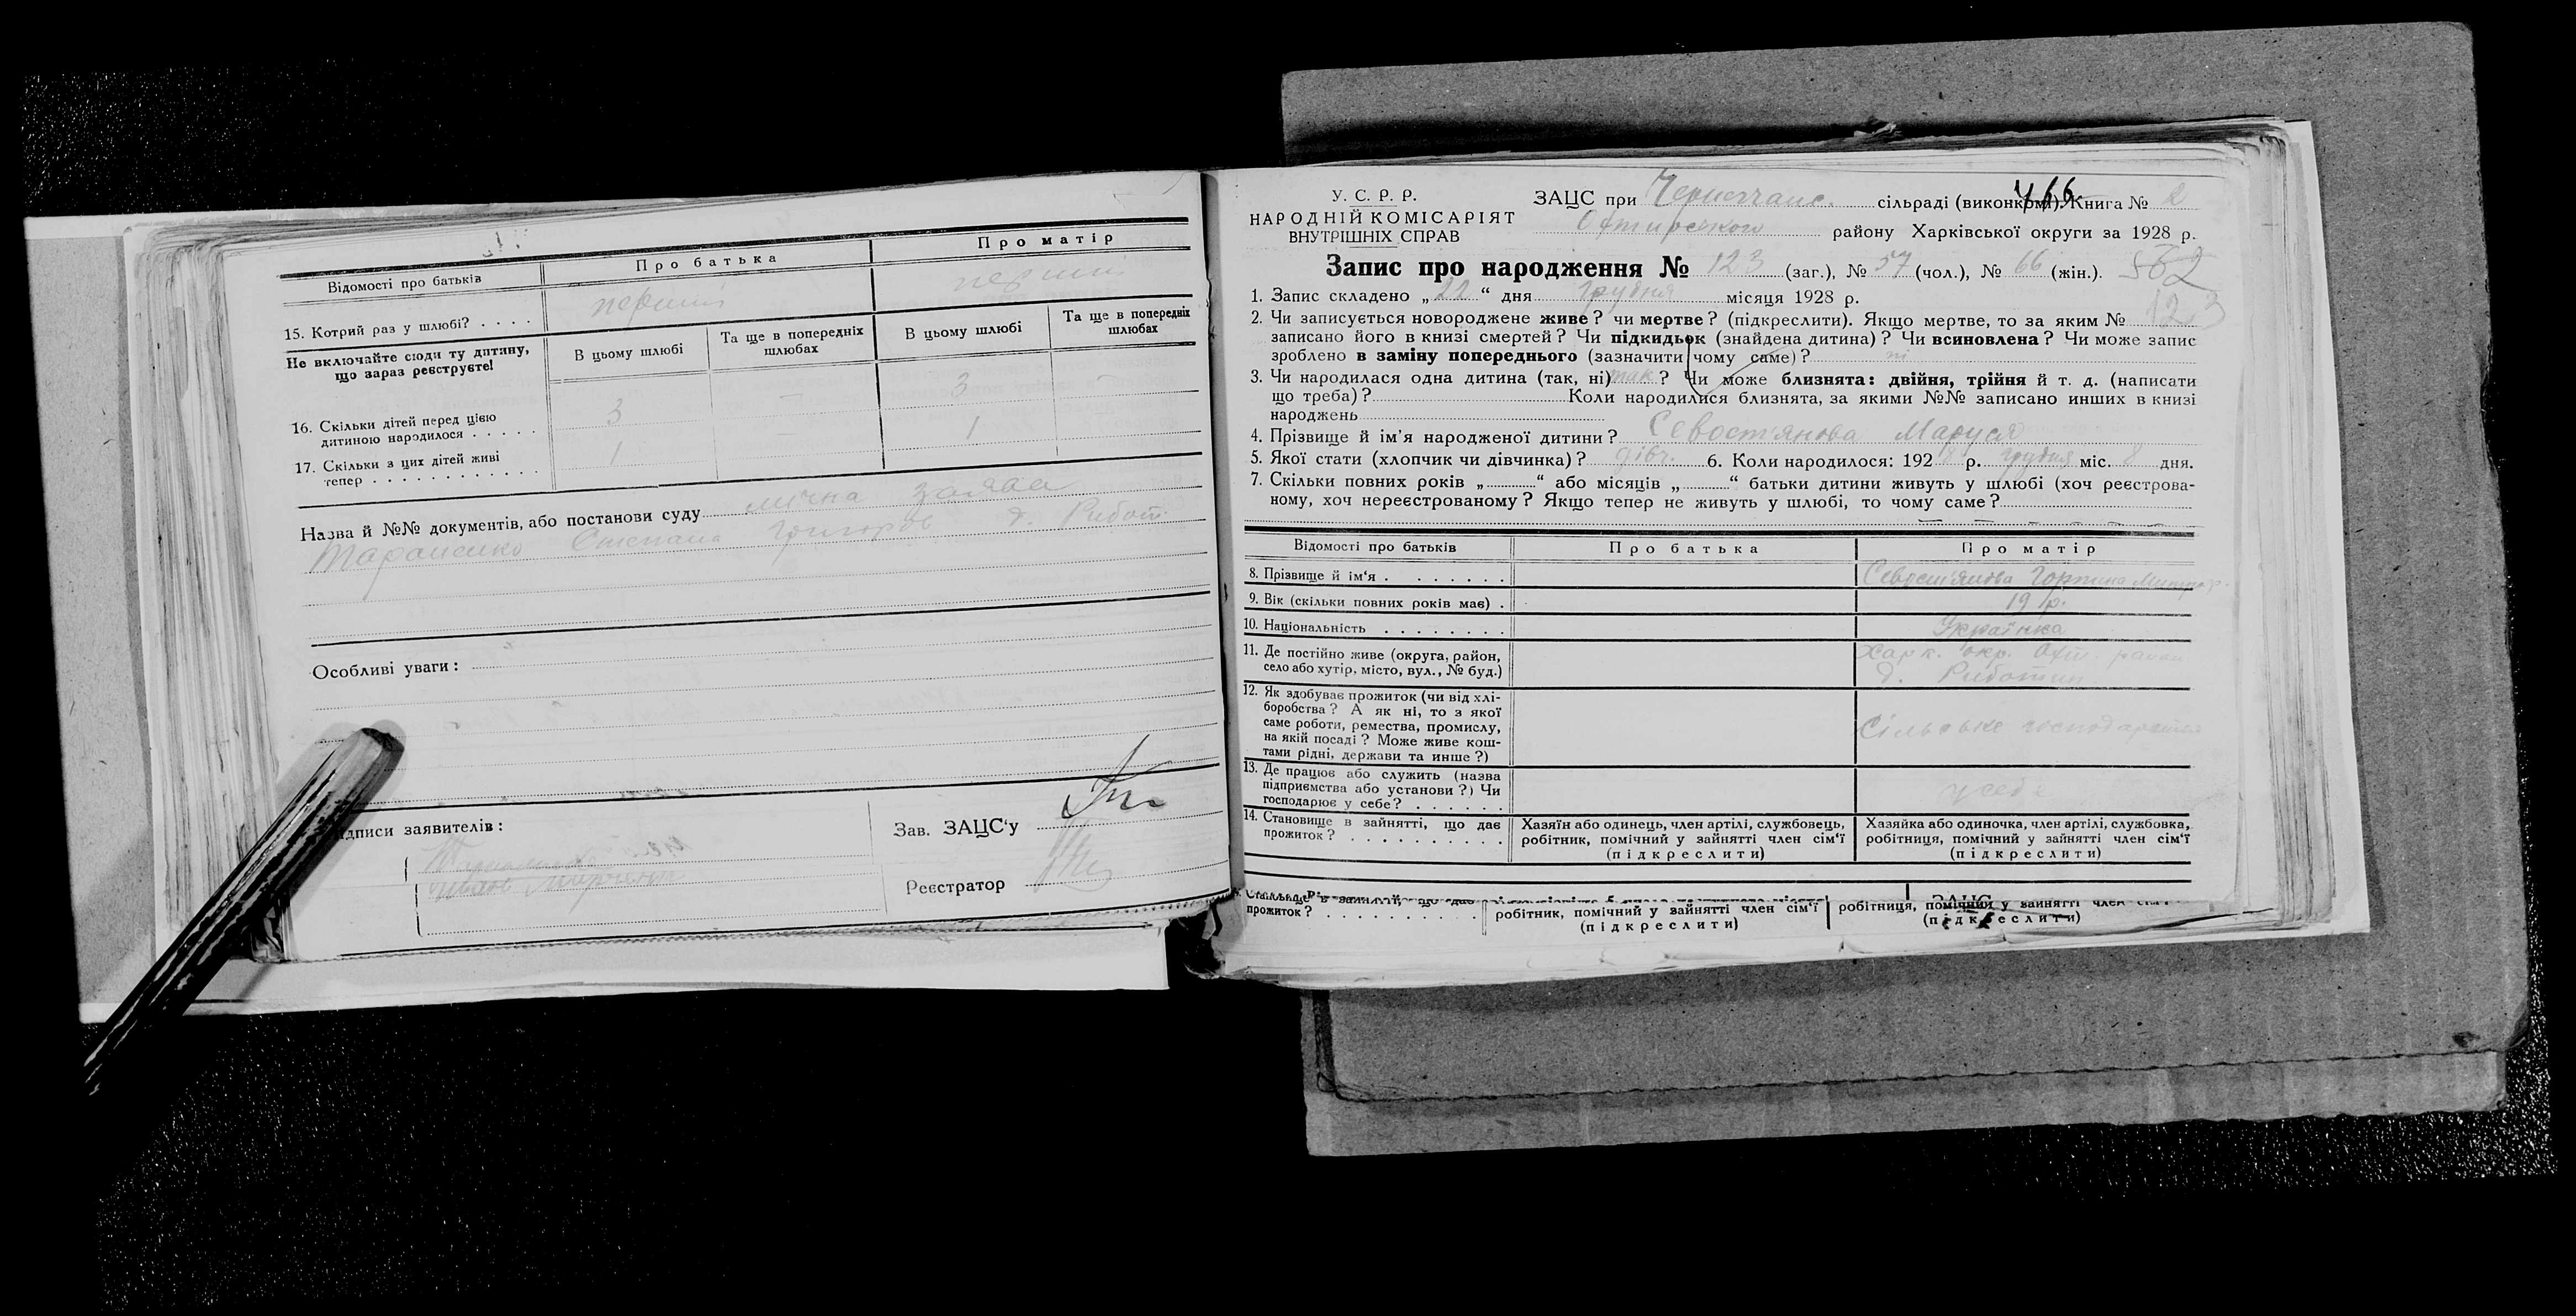 Відомості про батьків
Про батька
Про матір
15. Котрий раз у шлюбі? . . . .
перший
перший
Не включайте сюди ту дитину, що зараз реєструєте!
В цьому шлюбі
Та ще в попередніх шлюбах
В цьому шлюбі
Та ще в попередніх шлюбах
16. Скільки дітей перед цією
дитиною народилося . . . . .
3
—
3
—
17. Скільки з цих дітей живі
тепер . . . . . . . . . . .
1
—
1
—
Назва й №№ документів, або постанови суду
заява
Тараненко Степана Григоров д. Рибот.
Особливі уваги:
дписи заявителів:
Зав. ЗАЦС'у
Реєстратор
У. С. Р. Р.
НАРОДНІЙ КОМІСАРІЯТ
ВНУТРІШНІХ СПРАВ
ЗАЦС при Чернеччанс. сільраді (виконкомі). Книга № 2
466
Охтирського району Харківської округи за 1928 р.
Запис про народження № 123 (заг.), № 57 (чол.), № 66 (жін.).
562
123
1. Запис складено „22“ дня грудня місяця 1928 р.
2. Чи записується новороджене живе? чи мертве? (підкреслити). Якщо мертве, то за яким №
записано його в книзі смертей? Чи підкидьок (знайдена дитина)? Чи всиновлена? Чи може запис
зроблено в заміну попереднього (зазначити чому саме)? ні
3. Чи народилася одна дитина (так, ні) так? Чи може близнята: двійня, трійня й т. д. (написати
що треба)? Коли народилися близнята, за якими №№ записано инших в книзі
народжень
4. Прізвище й ім'я народженої дитини? Севост'янова Маруся
5. Якої стати (хлопчик чи дівчинка)? дівч. 6. Коли народилося: 1928 р. грудня міс. 8 дня.
7. Скільки повних років „ “ або місяців „ “ батьки дитини живуть у шлюбі (хоч реєстрова-
ному, хоч нереєстрованому? Якщо тепер не живуть у шлюбі, то чому саме?
Відомості про батьків
Про батька
Про матір
8. Прізвище й ім'я . . . . . . .
Севост'янова Горпина
9. Вік (скільки повних років має) .
19 р.
10. Національність . . . . . . . .
Українка
11. Де постійно живе (округа, район,
село або хутір, місто, вул., № буд.)
Харк. окр. Охт. район
д. Риботин
12. Як здобуває прожиток (чи від хлі-
боробства? А як ні, то з якої
саме роботи, ремества, промислу,
на якій посаді? Може живе кош-
тами рідні, держави та инше?)
Сільське господарство
13. Де працює або служить (назва
підприємства або установи?) Чи
господарює у себе? . . . . . .
у себе
14. Становище в зайнятті, що дає
прожиток? . . . . . . . . . .
Хазяїн або одинець, член артілі, службовець,
робітник, помічний у зайнятті член сім'ї
(підкреслити)
Хазяйка або одиночка, член артілі, службовка,
робітниця, помічний у зайнятті член сім'ї
(підкреслити)
прожиток? . . . . . . . . . .
робітник, помічний у зайнятті член сім'ї
(підкреслити)
робітниця, помічний у зайнятті член сім'ї
(підкреслити)